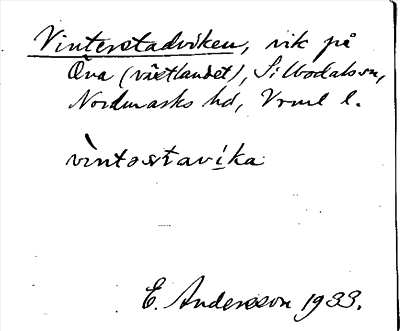 Vinterstadviken, vik på
Öna (västlandet), Silbodalssn,
Nordmarks hd, Vrml l.
vìntostavíka
E. Andersson 1933.